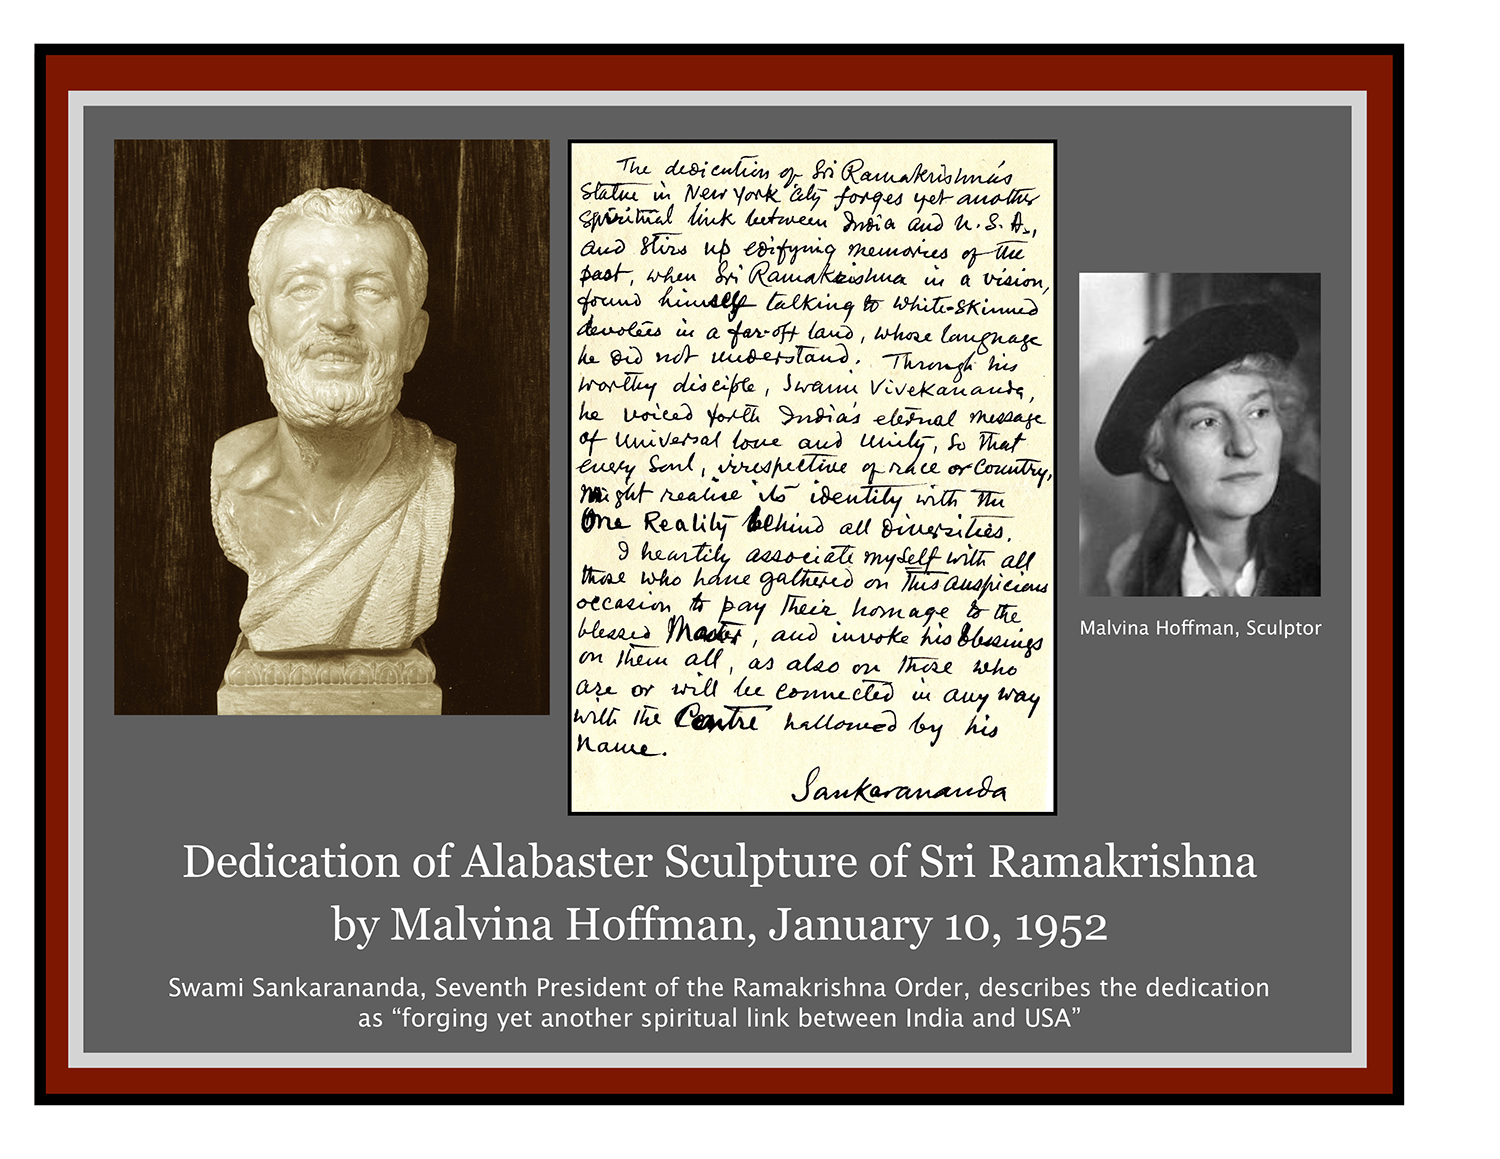 The dedication of Sri Ramakrishna's
Statue in New York City forges yet another
spiritual link between India and U.S.A.,
and stirs up edifying memories of the
past, when Sri Ramakrishna in a vision,
found himself talking to white-skinned
devotees in a far-off land, whose language
he did not understand. Through his
worthy disciple, Swami Vivekananda,
he voiced forth India's eternal message
of universal love and unity, so that
every Soul, irrespective of race or Country,
might realise its identity with the
One Reality behind all diversities.
I heartily associate myself with all
those who have gathered on this auspicious
occasion to pay their homage to the
blessed Master, and invoke his blessings
on them all, as also on those who
are or will be connected in any way
with the Centre hallowed by his
name.
Sankarananda
Malvina Hoffman, Sculptor
Dedication of Alabaster Sculpture of Sri Ramakrishna
by Malvina Hoffman, January 10, 1952
Swami Sankarananda, Seventh President of the Ramakrishna Order, describes the dedication
as “forging yet another spiritual link between India and USA”